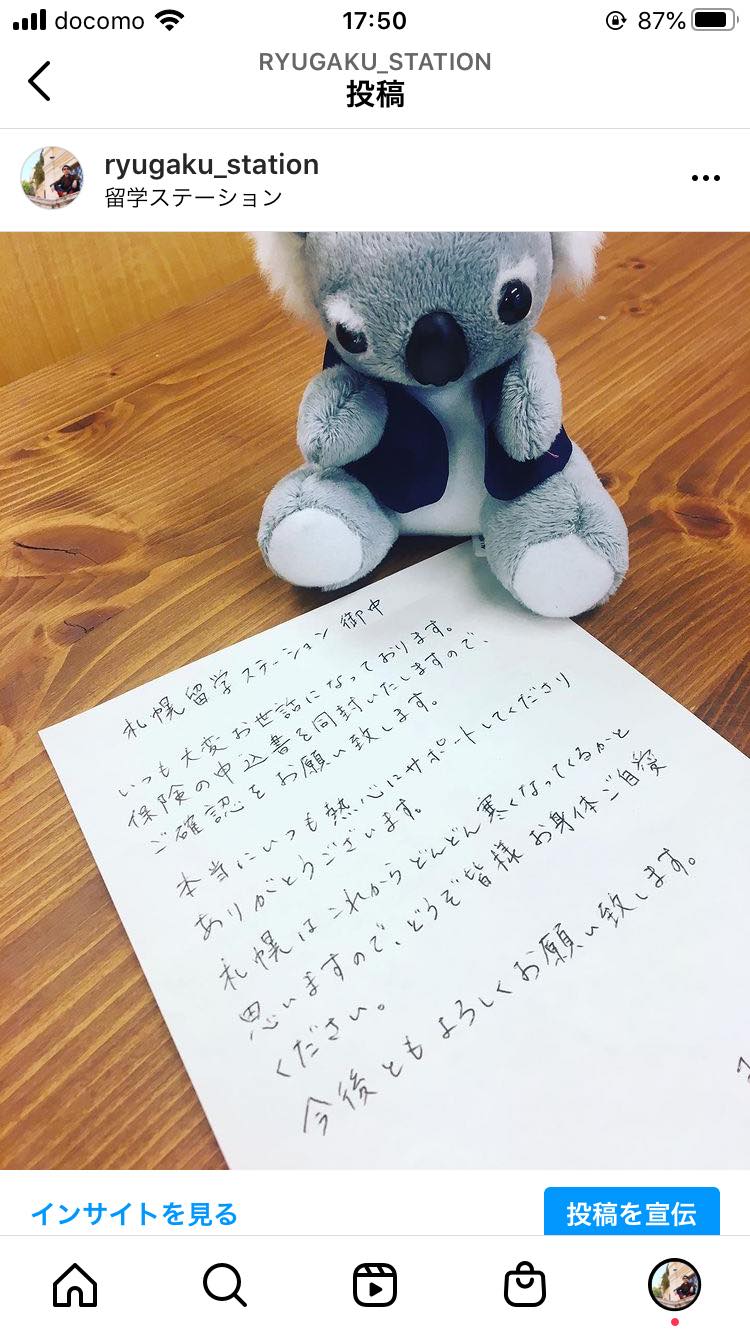 docomo
17:50
87%
RYUGAKU_STATION
投稿
ryugaku_station
留学ステーション
札幌留学ステーション 御中
いつも大変お世話になっております。
保険の申込書を同封いたしますので、
ご確認をお願い致します。
本当にいつも熱心にサポートしてくださり
ありがとうございます。
札幌はこれからどんどん寒くなってくるかと
思いますので、どうぞ皆様お身体ご自愛
ください。
今後ともよろしくお願い致します。
インサイトを見る
投稿を宣伝